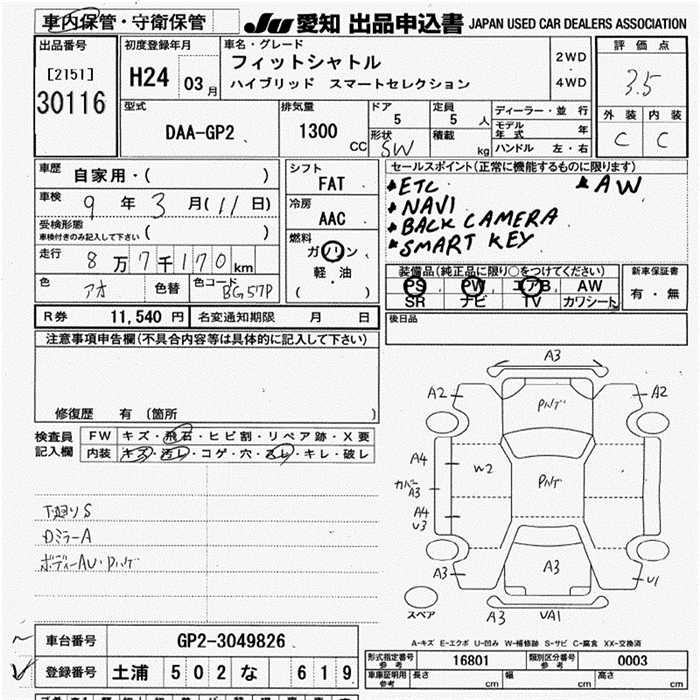 車内保管・守衛保管
JU 愛知 出品申込書 JAPAN USED CAR DEALERS ASSOCIATION
出品番号
[2151]
30116
初度登録年月
H24 03 月
車名・グレード
フィットシャトル
ハイブリッド スマートセレクション
2WD
・
4WD
評価点
3.5
外装 内装
C C
型式
DAA-GP2
排気量
1300
CC
ドア
5
定員
5 人
形状
SW
積載
kg
ディーラー・並行
モデル年式 年
ハンドル 左・右
車歴
自家用・( )
車検
9 年 3 月(11日)
受検形態
車検付きのみ記入して下さい ( )
走行
8万7千170km
色
アオ
色替
色コード
BG57P
シフト
FAT
冷房
AAC
燃料
ガソリン・
軽・油
( )
セールスポイント(正常に機能するものに限ります)
ETC
AW
NAVI
BACK CAMERA
SMART KEY
装備品(純正品に限り○をつけてください)
PS PW エアB AW
SR ナビ TV カワシート
新車保証書
有・無
R券 11,540 円 名変通知期限 月 日
後日品
注意事項申告欄(不具合内容等は具体的に記入して下さい)
修復歴 有 (箇所
検査員
記入欄
FW キズ・飛石・ヒビ割・リペア跡・X要
内装 キズ・汚レ・コゲ・穴・スレ・キレ・破レ
下廻りS
DミラーA
ボディーAU・Pハゲ
A3
A2
A2
Pハゲ
A4
W2
カバー
A3
Pハゲ
A4
U3
A3
A3
U1
スペア
A3
UA1
A-キズ E-エクボ U-凹み W-補修跡 S-サビ C-腐食 XX-交換済
車台番号 GP2-3049826
登録番号 土浦 502 な 619
形式指定番号
参考
16801
類別区分番号
参考
0003
車庫証明用
参考
長さ cm 幅 cm 高さ cm